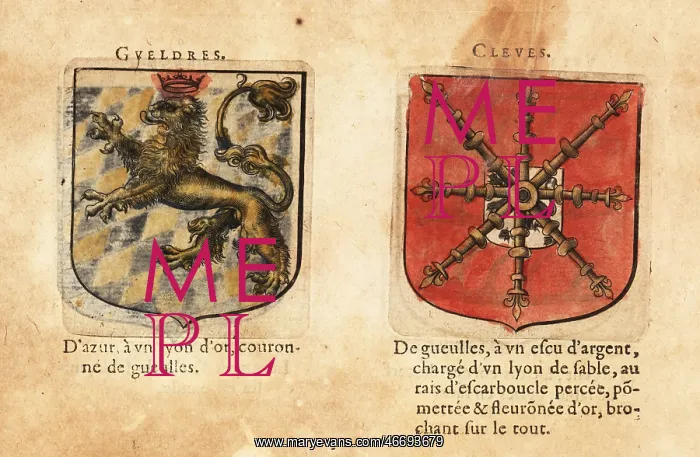 GVELDRES.
D'azur, à vn lyon d'or, couron-
né de gueulles.
CLEVES.
De gueulles, à vn eſcu d'argent,
chargé d'vn lyon de ſable, au
rais d'eſcarboucle percée, põ-
mettée & fleurõnée d'or, bro-
chant ſur le tout.
ME
PL
ME
PL
www.maryevans.com/46698679